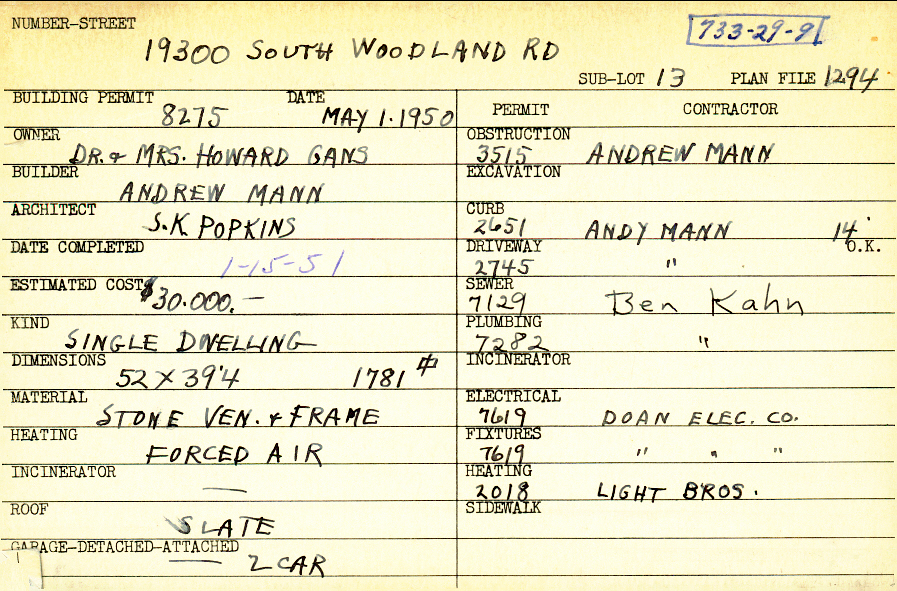 NUMBER-STREET
733-29-9
19300 SOUTH WOODLAND RD
SUB-LOT 13 PLAN FILE 1294
BUILDING PERMIT DATE
8275 MAY 1.1950
OWNER
DR. & MRS. HOWARD GANS
BUILDER
ANDREW MANN
ARCHITECT
S.K POPKINS
DATE COMPLETED
1-15-51
ESTIMATED COST
$30.000.—
KIND
SINGLE DWELLING
DIMENSIONS
52 X 39'4 1781
MATERIAL
STONE VEN. & FRAME
HEATING
FORCED AIR
INCINERATOR
—
ROOF
SLATE
GARAGE-DETACHED-ATTACHED
2 CAR
PERMIT CONTRACTOR
OBSTRUCTION
3515 ANDREW MANN
EXCAVATION
CURB
2651 ANDY MANN 14'
DRIVEWAY O.K.
2745 "
SEWER
7129 Ben Kahn
PLUMBING
7282 "
INCINERATOR
ELECTRICAL
7619 DOAN ELEC. CO.
FIXTURES
7619 " " "
HEATING
2018 LIGHT BROS.
SIDEWALK